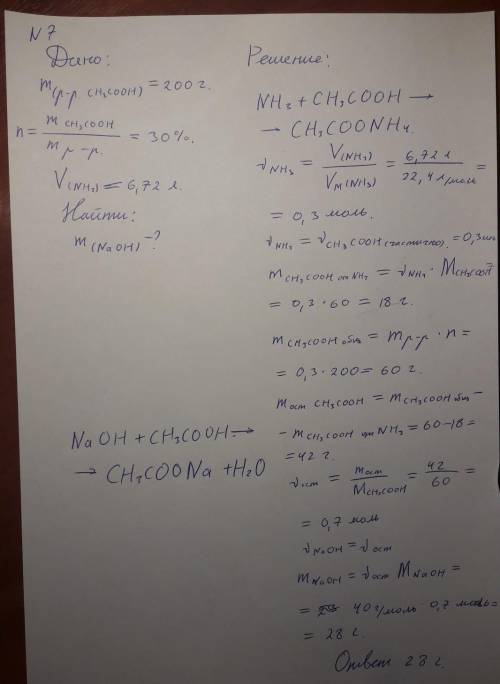 N 7
Дано:
m(р-р. CH3COOH) = 200 г.
n = m CH3COOH / m р-р. = 30%.
V(NH3) = 6,72 л.
Найти:
m(NaOH) - ?
NaOH + CH3COOH →
→ CH3COONa + H2O
Решение:
NH3 + CH3COOH →
→ CH3COONH4.
νNH3 = V(NH3) / VM(NH3) = 6,72 л / 22,4 л/моль =
= 0,3 моль.
νNH3 = νCH3COOH (частично). = 0,3
mCH3COOH от NH3 = νNH3 · MCH3COOH =
= 0,3 · 60 = 18 г.
mCH3COOH общ = mр-р · n =
= 0,3 · 200 = 60 г.
mост CH3COOH = mCH3COOH общ -
- mCH3COOH NH3 = 60-18 =
= 42 г.
νост = mост / MCH3COOH = 42 / 60 =
= 0,7 моль
νNaOH = νост
mNaOH = νост MNaOH =
= 40 г/моль · 0,7 моль =
= 28 г.
Ответ 28 г.